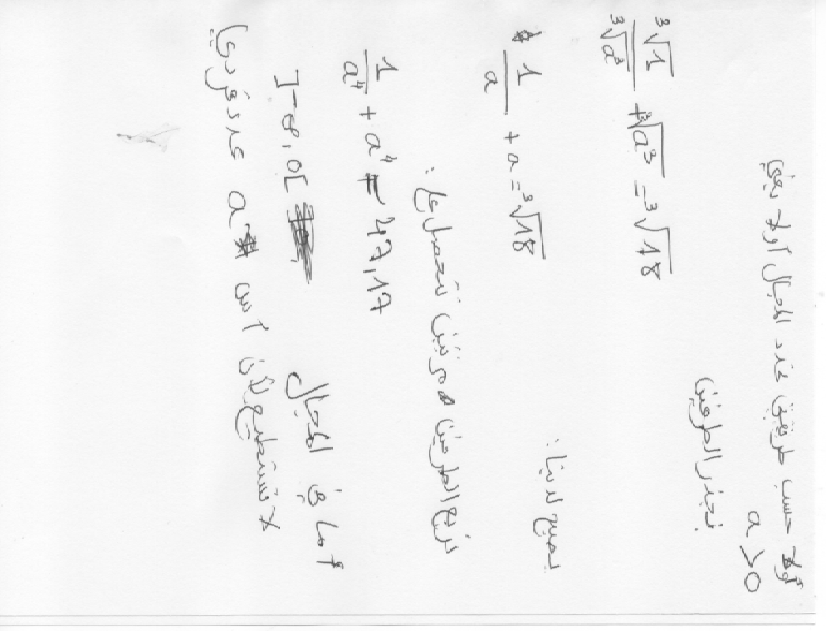 أولا حسب طريقتي نحدد المجال أولا يعني
a>0
نجذر الطرفين
∛1/∛a³ + ∛a³ = ∛18
يصبح لدينا:
1/a + a = ∛18
نربع الطرفين مرتين نتحصل على:
1/a⁴ + a⁴ = 47,17
أما في المجال ]-∞,0[
لا نستطيع لأن أس a عدد فردي